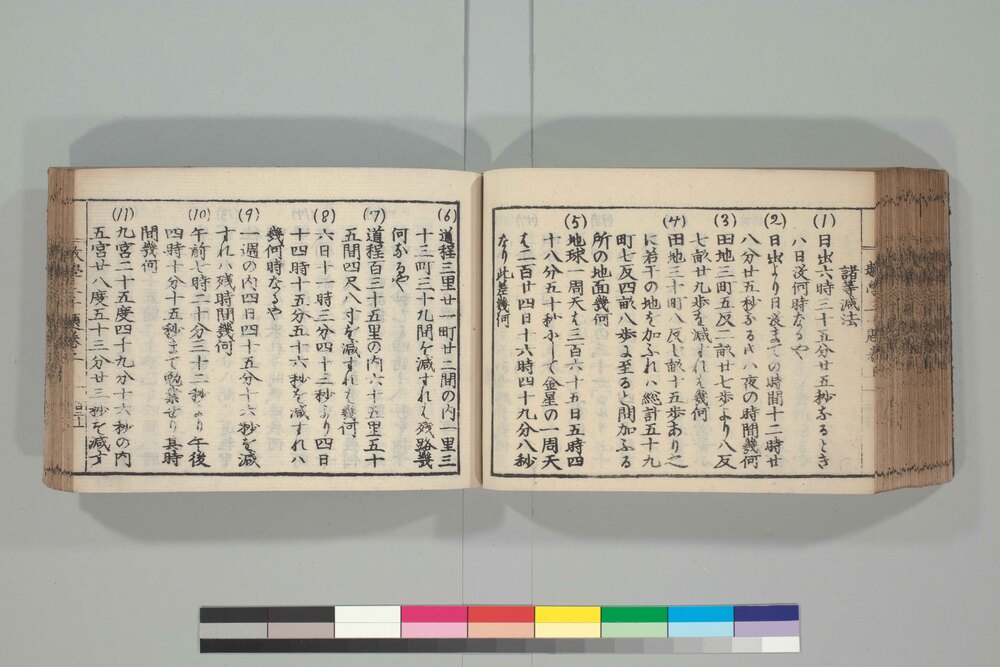 諸等減法
(1) 日出六時三十五分廿五秒なるとき
ハ日没何時なるや
(2) 日出より日没まての時間十二時廿
八分廿五秒なる時ハ夜の時間幾何
(3) 田地三町五反二畝廿七歩より八反
七畝廿九歩を減すれは幾何
(4) 田地三十町八反七畝十五歩あり之
に若干の地を加ふれハ総計五十九
町七反四畝八歩に至ると問加ふる
所の地面幾何
(5) 地球一周天は三百六十五日五時四
十八分五十秒にして金星の一周天
は二百廿四日十六時四十九分八秒
なり此差幾何
(6) 道程三里廿一町廿二間の内一里三
十三町三十九間を減すれは残路幾
何なるや
(7) 道程百三十五里の内六十五里五十
五間四尺八寸を減すれは幾何
(8) 六日十一時三分四十三秒より四日
十四時十五分五十六秒を減すれハ
幾何時なるや
(9) 一週の内四日四十五分十六秒を減
すれハ残時間幾何
(10) 午前七時二十分三十二秒より午後
四時十分十五秒まて勉業せり其時
間幾何
(11) 九宮二十五度四十九分十六秒の内
五宮廿八度五十三分廿三秒を減す